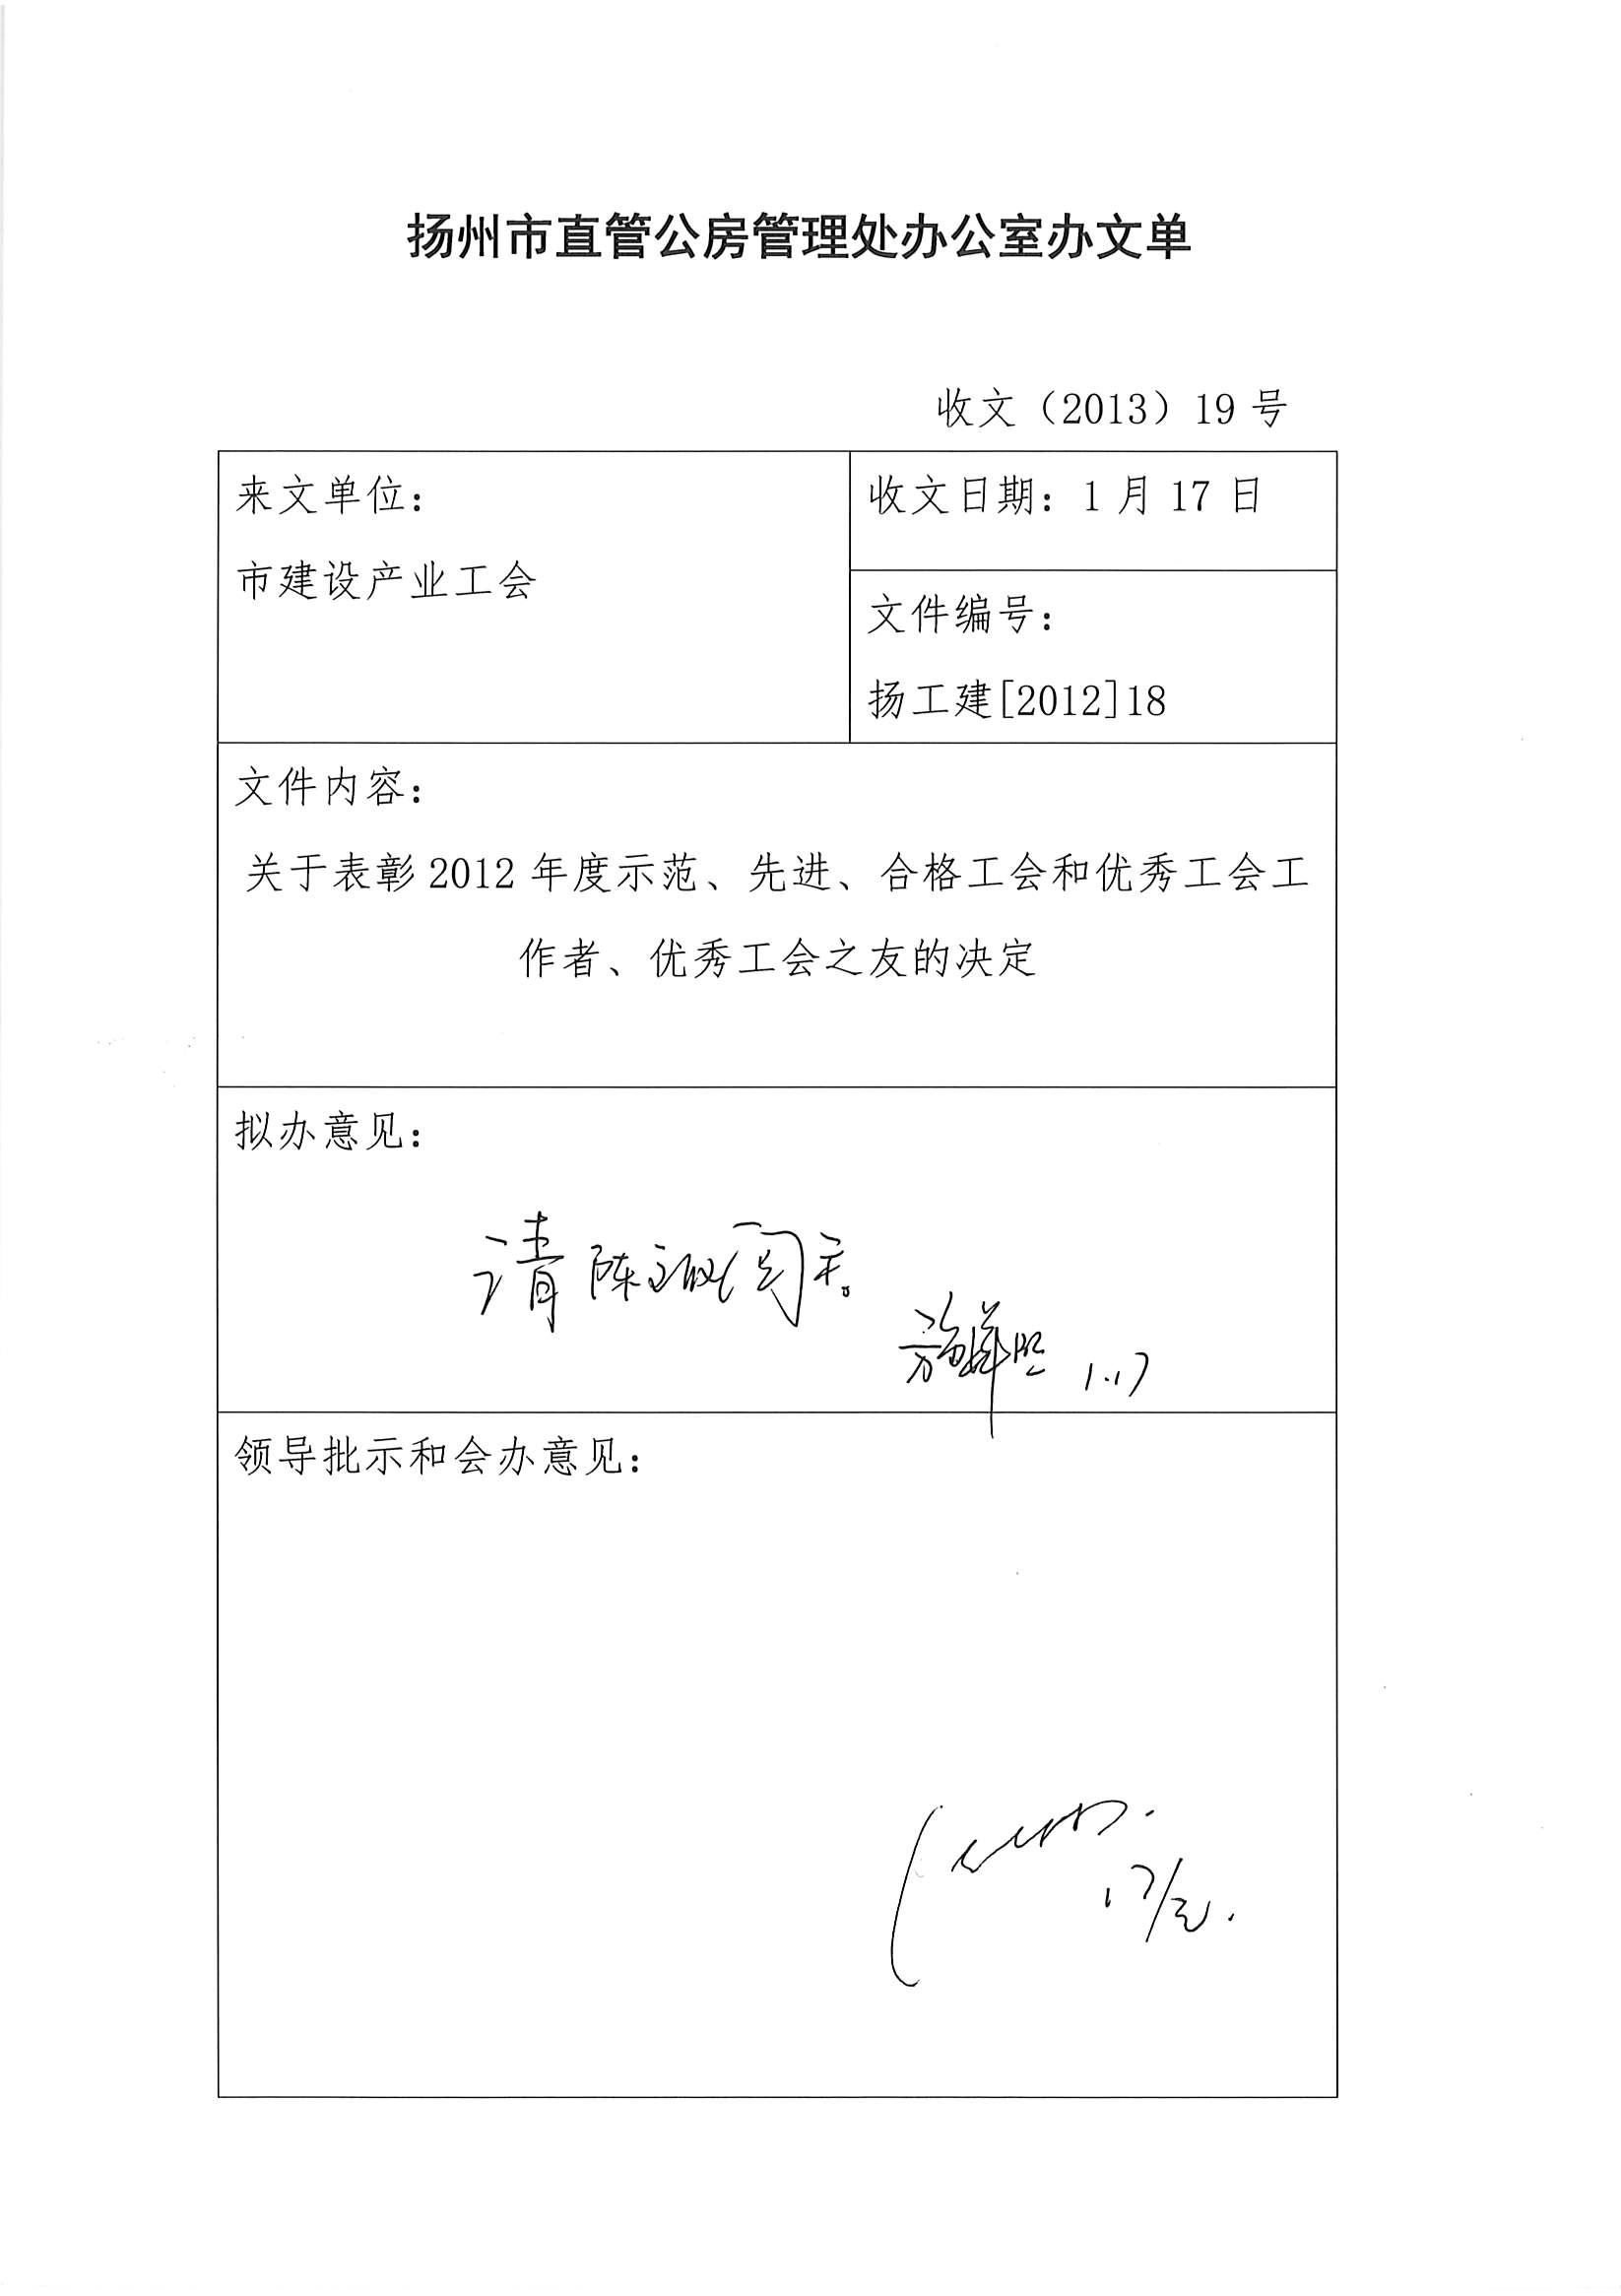 扬州市直管公房管理处办公室办文单
收文（2013）19 号
来文单位：
市建设产业工会
收文日期：1 月 17 日
文件编号：
扬工建[2012]18
文件内容：
关于表彰 2012 年度示范、先进、合格工会和优秀工会工
作者、优秀工会之友的决定
拟办意见：
请陈 阅示。
1.17
领导批示和会办意见：
17/元.